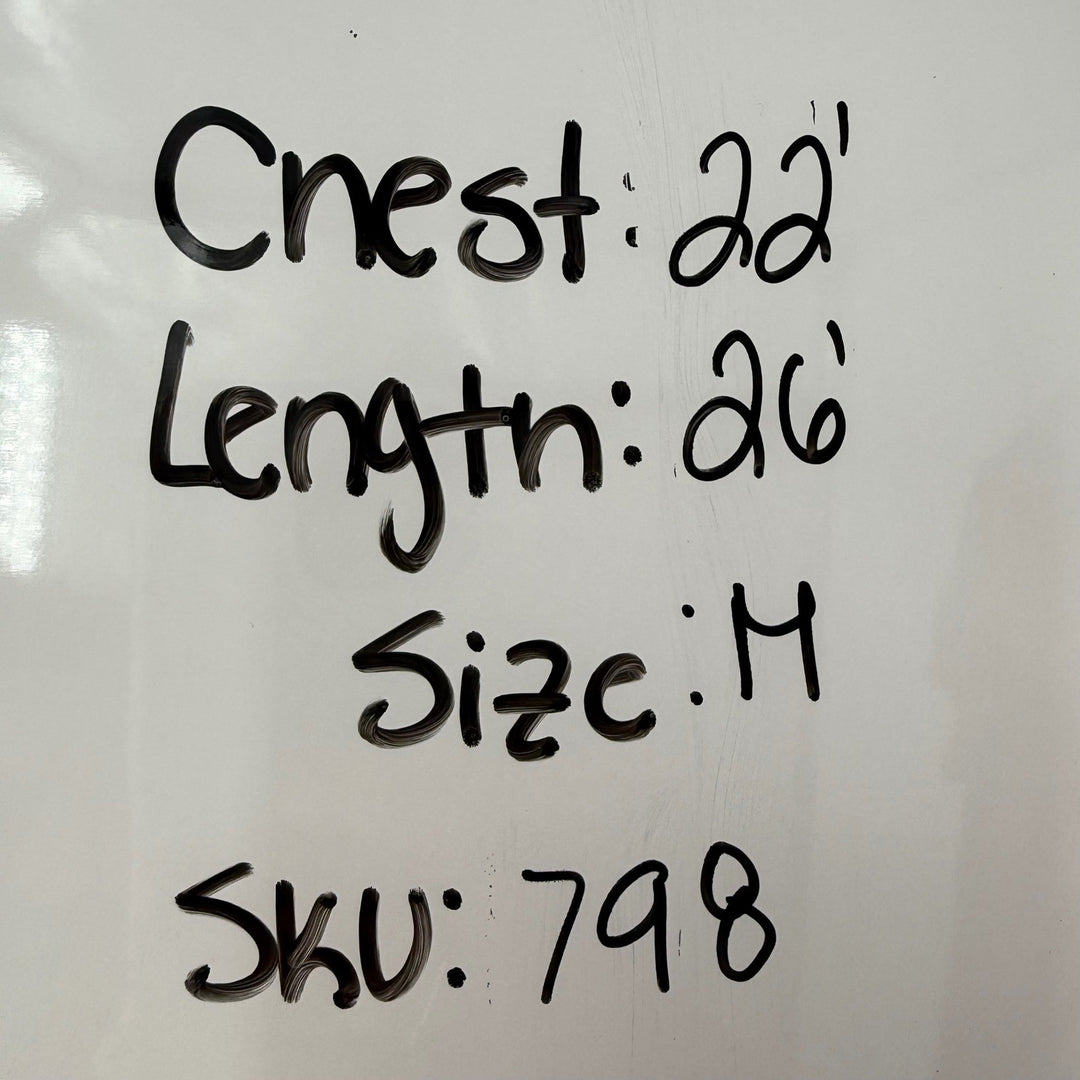 Chest: 22'
Length: 26'
Size: M
SKU: 798